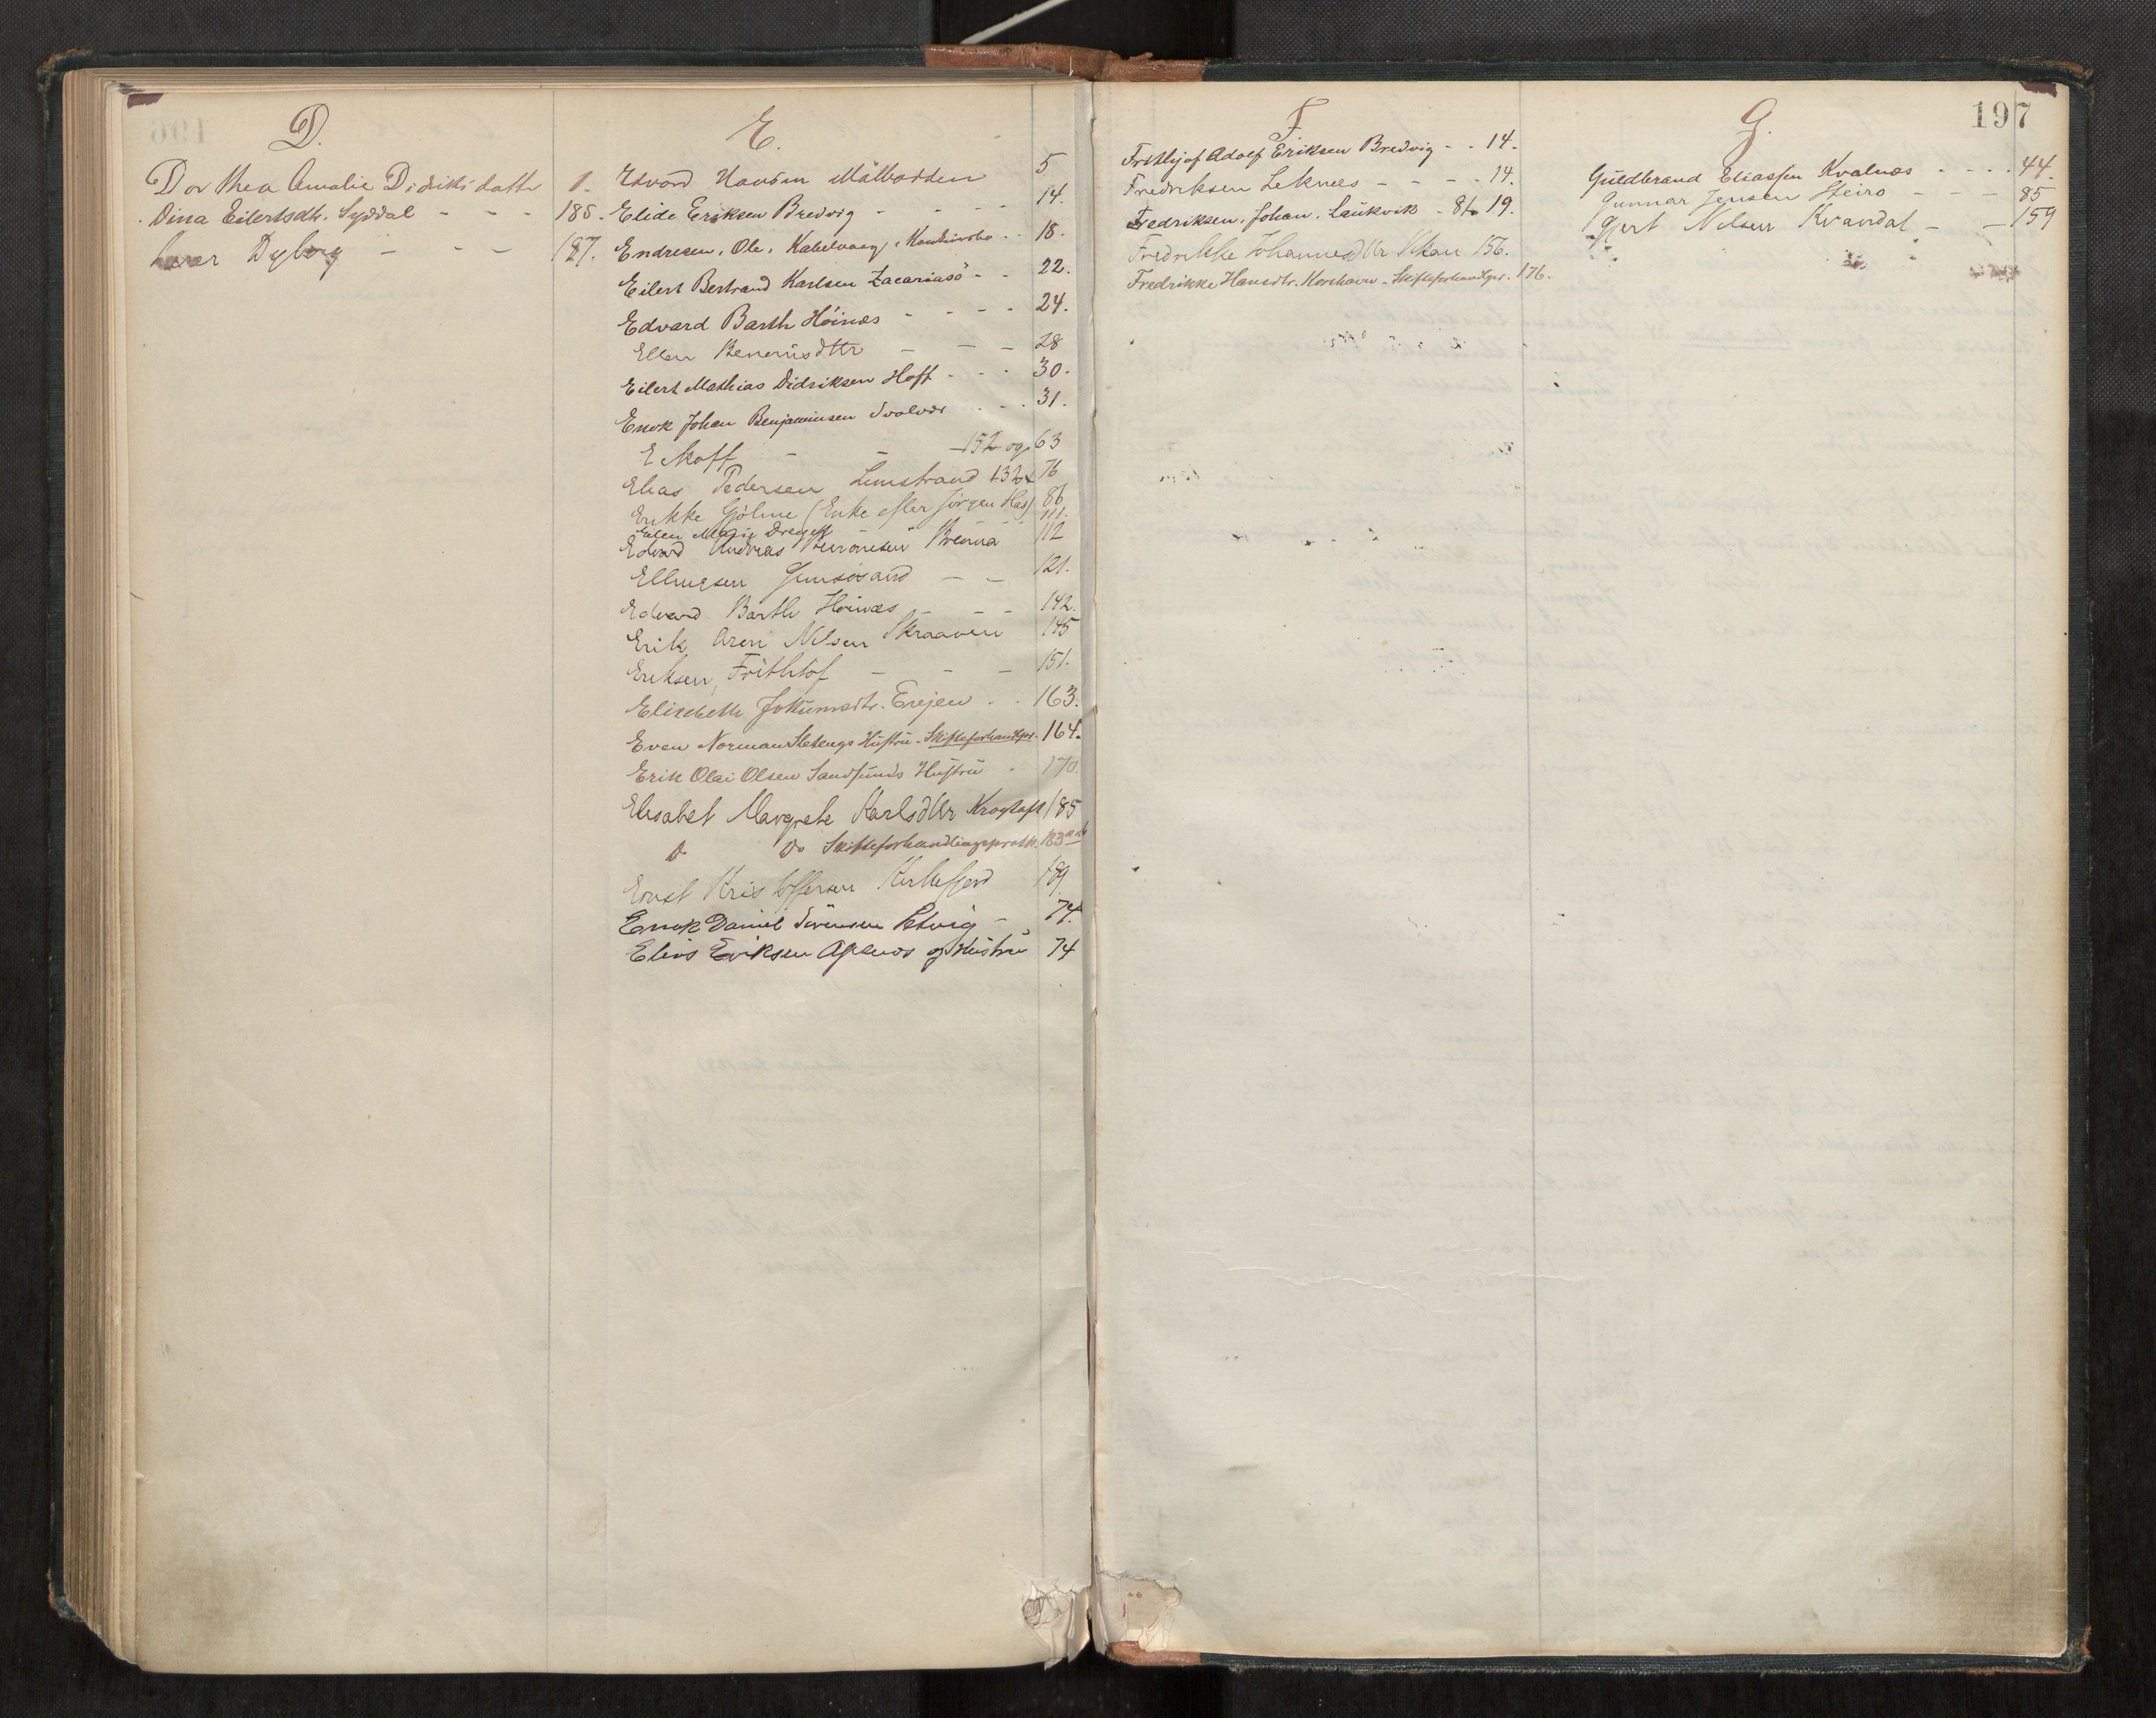 D.
Dorthea Amalie Didriksdattr 1.
Dina Eilertsdtr. Syddal - - - 185.
Dyberg - - - 187.
E.
Edvard Hansen 5
Elide Eriksen Bredvig - - - 14.
Endresen, Ole, Kabelvaag, - - 18.
Eilert Bertrand Karlsen Zacariasö - - 22.
Edvard Barth Höinæs - - - - 24.
Ellen - - - 28
Eilert Mathias Didriksen Hoff - - - 30.
Enok Johan Benjaminsen Svolvær - - - 31.
E. Moff - - - 152 og 63
Elias Pedersen Limstrand 132 76
Erikke Gjölme (Enke efter Jörgen Has) 86
Ellen Marie Dreyer 111.
Edvard Andreas Brenna 112
Ellingsen Gimsösand - - 121.
Edvard Barth Höinæs - - - 142.
Erik Aren Nilsen Skraaven 145
Eriksen, Frithtof - - - 151.
Elisebeth Jokumsdtr. - - 163.
Even Norman Steengs Hustru - Skifteforhandlpr. 164.
Erik Olai Olsen Sandsunds Hustru - 170.
Elisabet Margrete Karlsdttr Krogtoft 185
Do Do Skifteforhandlingsprotk. 183
Ernst Kristoffersen Kirkefjord 189
Enok Daniel Sörensen Petvig - 74.
Elias Eriksen Apenæs og Hustru 74
F.
Frithjof Adolf Eriksen Bredvig - - 14.
Fredriksen Leknæs - - - - 14.
Fredriksen, Johan, Laukvik - 86 19.
Fredrikke Johannesdttr Skau 156.
Fredrikke Hansdtr. Korshavn - Skifteforhandlpr. 176.
197
G.
Guldbrand Eliassen Kvalnæs - - - - 44.
Gunnar Jensen Steiro - - - 85
Gjert Nilsen Kvandal - - 159